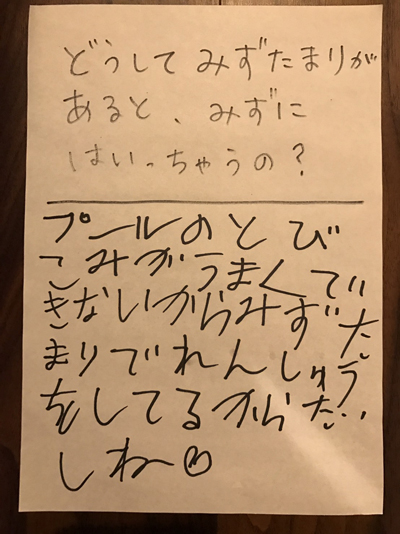 どうして みずたまりが
あると、みずに
はいっちゃうの?
プールのとび
こみがうまくで
きないからみずた
まりでれんしゅう
をしてるからだ…
しね〜